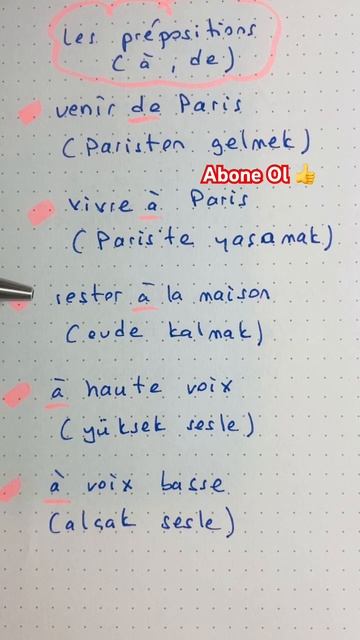 Les prépositions
(à, de)
venir de Paris
(Paris'ten gelmek)
Abone Ol 👍
vivre à Paris
(Paris'te yaşamak)
rester à la maison
(evde kalmak)
à haute voix
(yüksek sesle)
à voix basse
(alçak sesle)